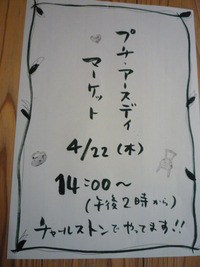 プチ・アースデイ
マーケット
4/22（木）
14:00〜
（午後2時から）
チャールストンでやってます!!